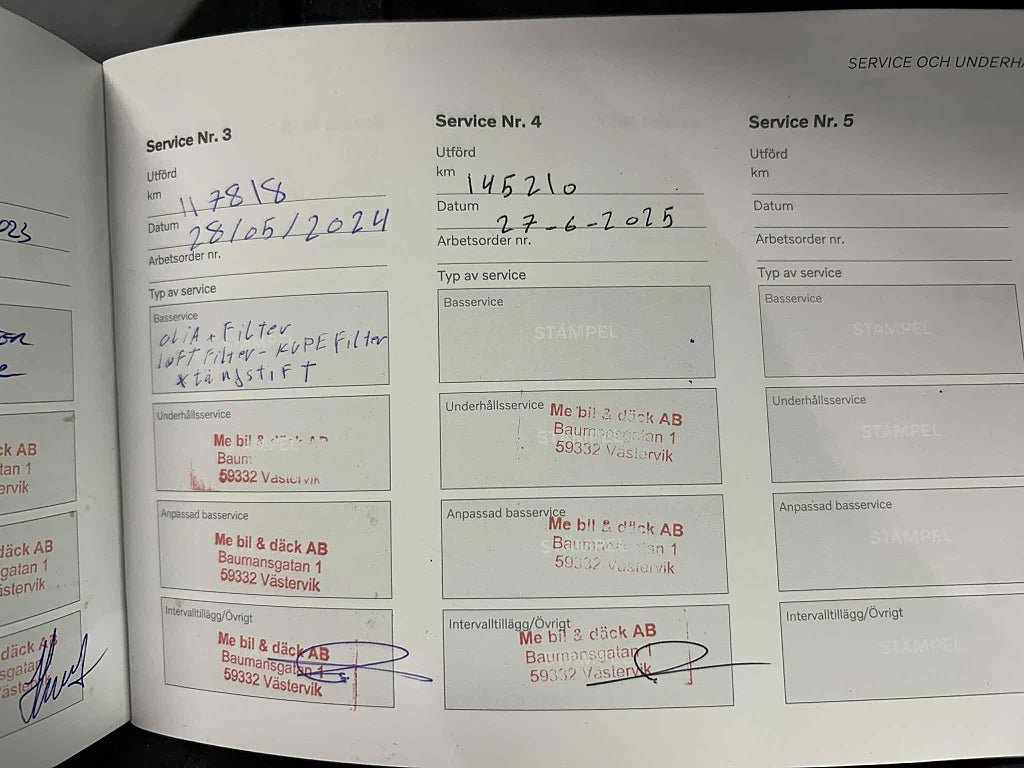 SERVICE OCH UNDERHÅ
Service Nr. 3
Utförd
km 117818
Datum 28/05/2024
Arbetsorder nr.
Typ av service
Basservice
oliA + Filter
luFT Filter - KUPE Filter
tändstiFT
Underhållsservice
Me bil & däck AB
Baum
59332 Västervik
Anpassad basservice
Me bil & däck AB
Baumansgatan 1
59332 Västervik
Intervalltillägg/Övrigt
Me bil & däck AB
Baumansgatan 1
59332 Västervik
Service Nr. 4
Utförd
km 145210
Datum 27-6-2025
Arbetsorder nr.
Typ av service
Basservice
STÄMPEL
Underhållsservice
Me bil & däck AB
Baumansgatan 1
59332 Västervik
Anpassad basservice
Me bil & däck AB
Baumansgatan 1
59332 Västervik
Intervalltillägg/Övrigt
Me bil & däck AB
Baumansgatan 1
59332 Västervik
Service Nr. 5
Utförd
km
Datum
Arbetsorder nr.
Typ av service
Basservice
STÄMPEL
Underhållsservice
STÄMPEL
Anpassad basservice
STÄMPEL
Intervalltillägg/Övrigt
STÄMPEL
023
ck AB
tan 1
ervik
däck AB
gatan 1
stervik
däck A
sgata